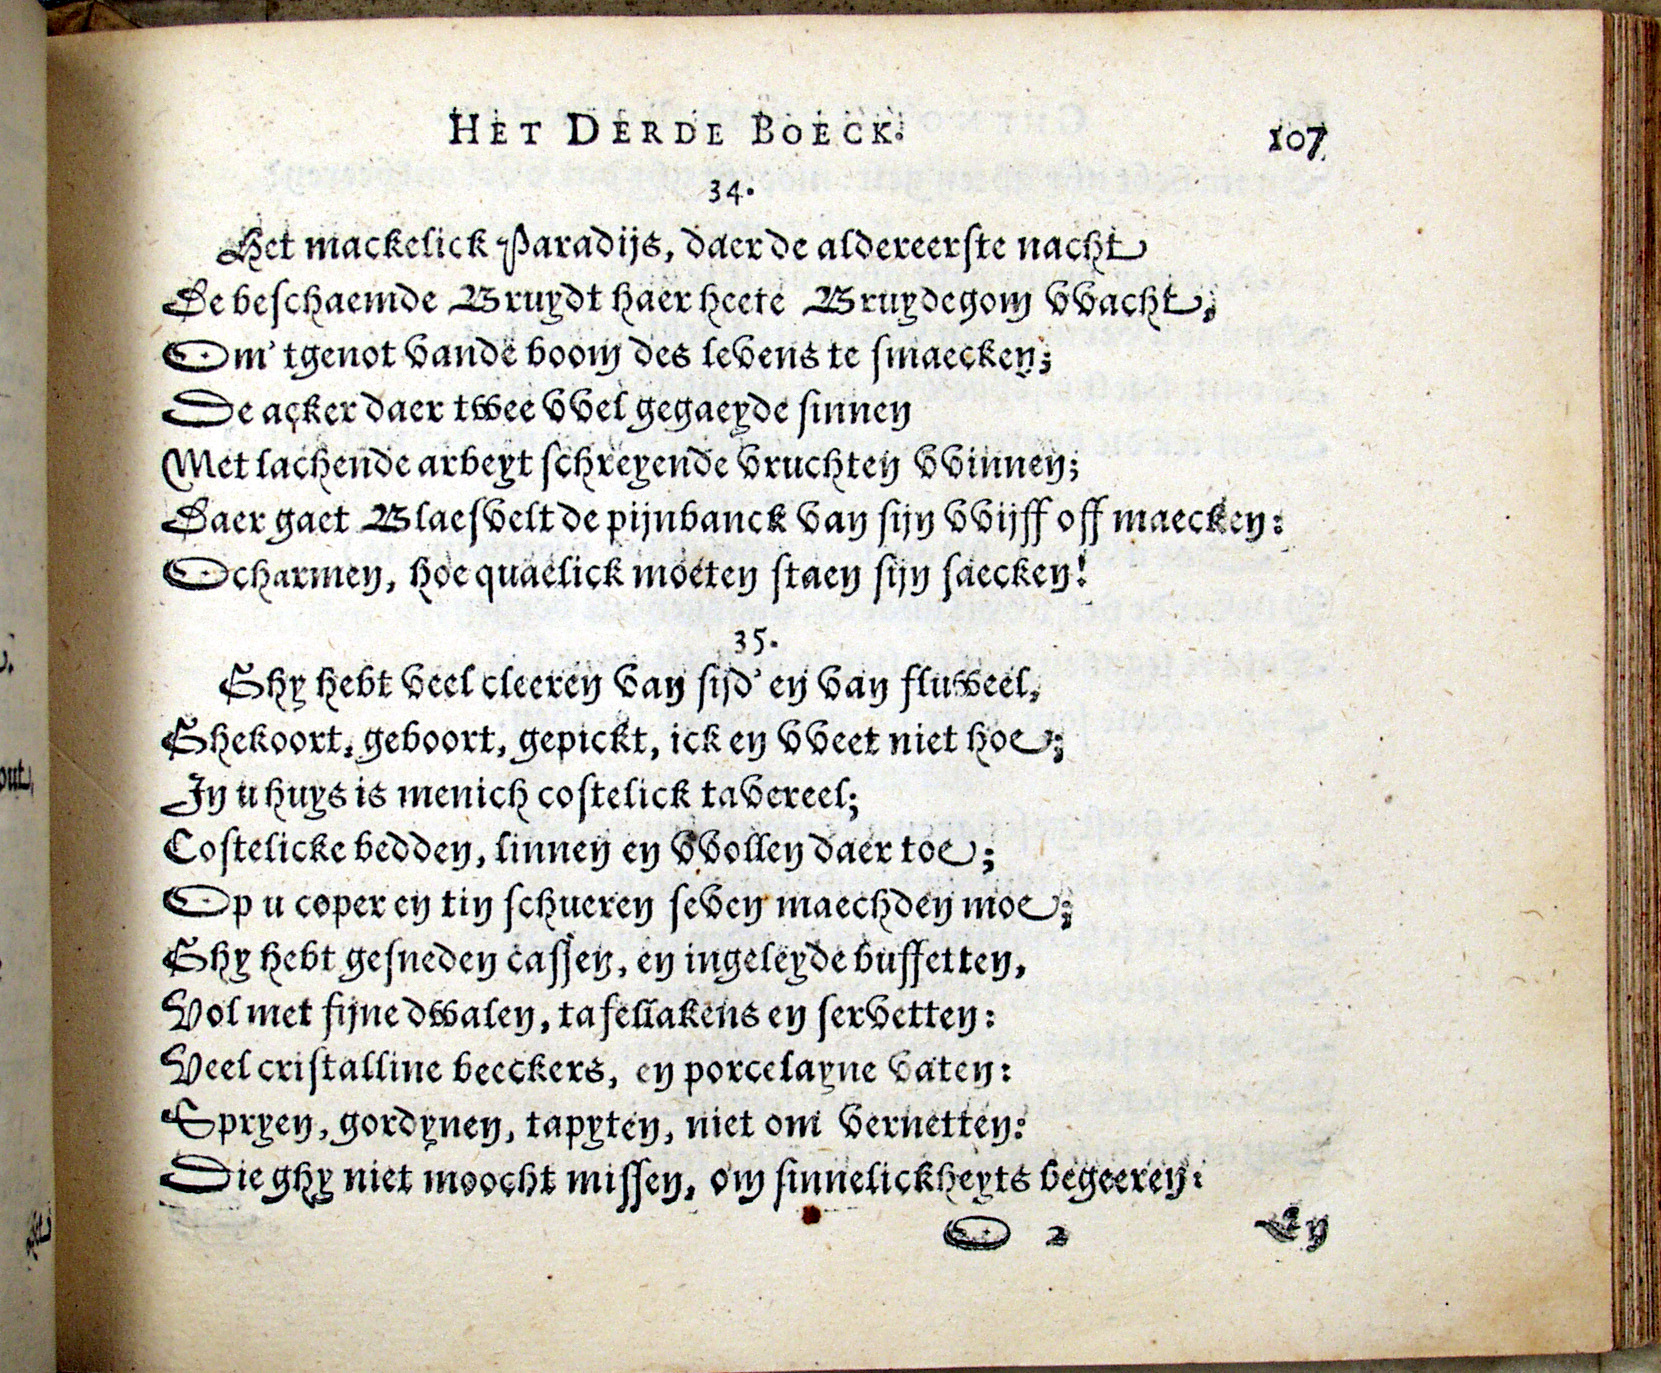 HET DERDE BOECK. 107
34.
Het mackelick Paradijs, daer de aldereerste nacht
De beschaemde Bruydt haer heete Bruydegom vvacht,
Om’ tgenot vande boom des levens te smaecken;
De acker daer twee vvel gegaeyde sinnen
Met lachende arbeyt schreyende vruchten vvinnen;
Daer gaet Blaesvelt de pijnbanck van sijn vvijff off maecken:
Ocharmen, hoe quaelick moeten staen sijn saecken!
35.
Ghy hebt veel cleeren van sijd’ en van fluweel,
Ghekoort, geboort, gepickt, ick en vveet niet hoe;
In u huys is menich costelick tavereel;
Costelicke bedden, linnen en vvollen daer toe;
Op u coper en tin schueren seven maechden moe;
Ghy hebt gesneden cassen, en ingeleyde buffetten,
Vol met fijne dwalen, tafellakens en servetten:
Veel cristalline beeckers, en porcelayne vaten:
Spryen, gordynen, tapyten, niet om vernetten:
Die ghy niet moocht missen, om sinnelickheyts begeeren:
O 2 En